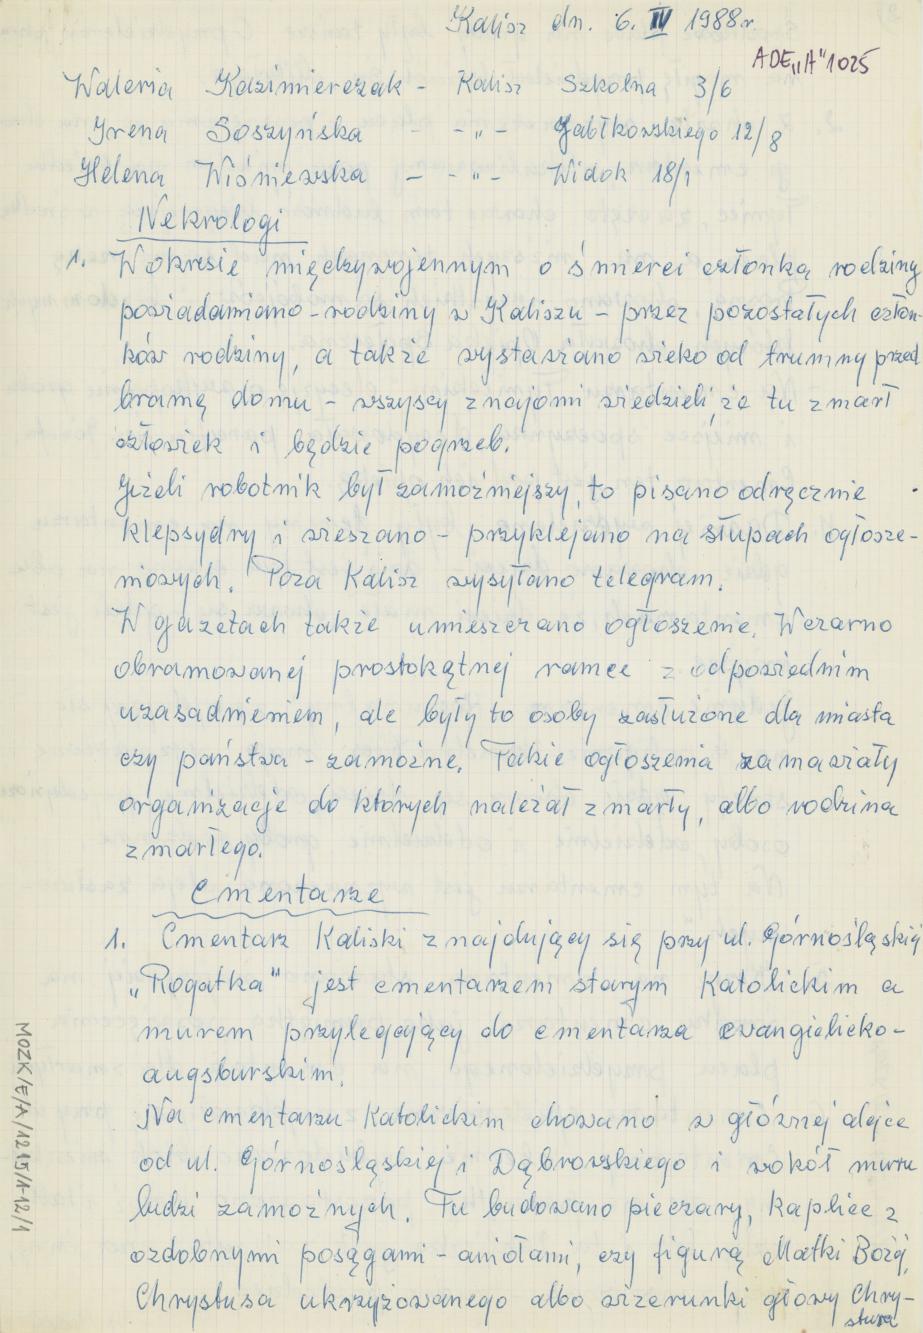 Kalisz dn. 6. IV 1988r.
ADE „A" 1025
Waleria Kazimierczak - Kalisz Szkolna 3/6
Irena Soszyńska - - „ - Jabłkowskiego 12/8
Helena Wiśniewska - - „ - Widok 18/1
Nekrologi
1. W okresie międzywojennym o śmierci członka rodziny
powiadamiano - rodziny w Kaliszu - przez pozostałych człon-
ków rodziny, a także wystawiano wieko od trumny przed
bramę domu - wszyscy znajomi wiedzieli, że tu zmarł
człowiek i będzie pogrzeb.
Jeżeli robotnik był zamożniejszy, to pisano odręcznie
klepsydry i wieszano - przyklejano na słupach ogłosze-
niowych. Poza Kalisz wysyłano telegram.
W gazetach także umieszczano ogłoszenie. W czarno
obramowanej prostokątnej ramce z odpowiednim
uzasadnieniem, ale były to osoby zasłużone dla miasta
czy państwa - zamożne. Takie ogłoszenia zamawiały
organizacje do których należał zmarły, albo rodzina
zmarłego.
Cmentarze
1. Cmentarz Kaliski znajdujący się przy ul. Górnośląskiej
„Rogatka" jest cmentarzem starym Katolickim a
murem przylegający do cmentarza ewangielicko-
augsburskim.
Na cmentarzu Katolickim chowano w głównej alejce
od ul. Górnośląskiej i Dąbrowskiego i wokół muru
ludzi zamożnych. Tu budowano pieczary, kaplice z
ozdobnymi posągami - aniołami, czy figurą Matki Bożej,
Chrystusa ukrzyżowanego albo wizerunki głowy Chry-
stusa
MOZK/E/A/1215/1-12/1